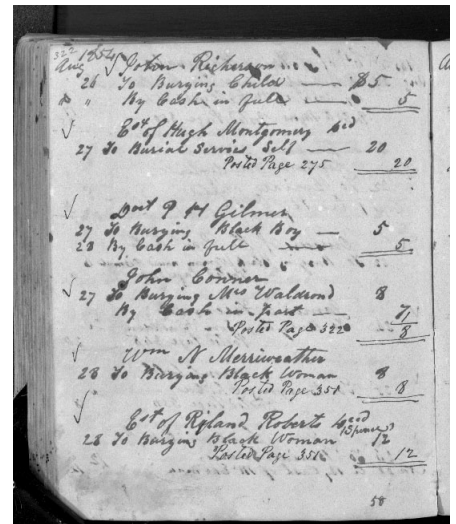 322
Aug 1854 John Richerson
26 To Burying Child $5
" " By Cash in full 5
Est of Hugh Montgomery
27 To Burial Services Self 20
Posted Page 275 20
P H Gilmer
27 To Burying Black Boy 5
28 By Cash in full 5
John Conner
27 To Burying Mrs Waldrond 8
By Cash in Part
Posted Page 322 8
Wm N Merriweather
28 To Burying Black Woman 8
Posted Page 351 8
Est of Ryland Roberts
28 To Burying Black Woman 12
Posted Page 351 12
58